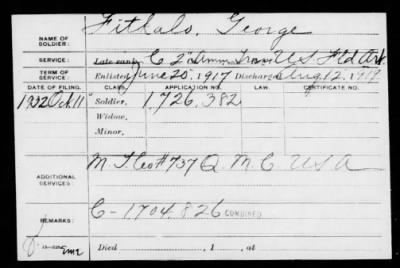 NAME OF SOLDIER: Fitkalo, George
SERVICE: Late rank, C 2" Amm Train U.S. Fld Art.
TERM OF SERVICE: Enlisted June 20", 1917 Discharged Aug 12, 1919
DATE OF FILING. CLASS. APPLICATION NO. LAW. CERTIFICATE NO.
1932 Oct. 11" Soldier. 1,726,382
Widow.
Minor.
ADDITIONAL SERVICES: M. T. Co #737 Q. M. C USA
REMARKS: C-1,704,826 COMBINED
Died , 1 , at